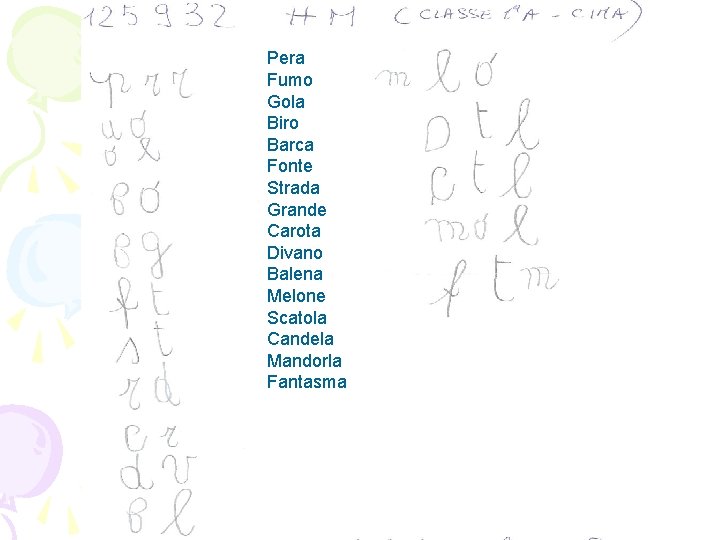 125932 HM (CLASSE 1ªA - CIMA)
p r r
u ó
ó l
B ó
B g
f t
s t
r d
c r
d v
B l
Pera
Fumo
Gola
Biro
Barca
Fonte
Strada
Grande
Carota
Divano
Balena
Melone
Scatola
Candela
Mandorla
Fantasma
m l ó
D t l
c t l
m ó l
f t m